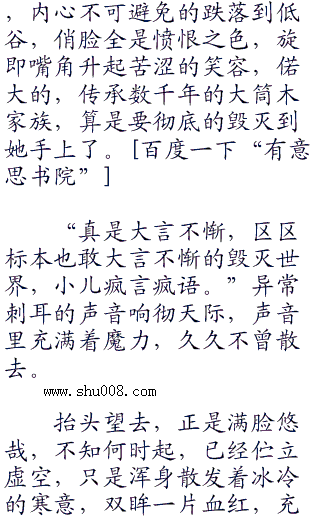 ，内心不可避免的跌落到低
谷，俏脸全是愤恨之色，旋
即嘴角升起苦涩的笑容，偌
大的，传承数千年的大筒木
家族，算是要彻底的毁灭到
她手上了。[百度一下“有意
思书院”]
“真是大言不惭，区区
标本也敢大言不惭的毁灭世
界，小儿疯言疯语。”异常
刺耳的声音响彻天际，声音
里充满着魔力，久久不曾散
去。
www.shu008.com
抬头望去，正是满脸悠
哉，不知何时起，已经伫立
虚空，只是浑身散发着冰冷
的寒意，双眸一片血红，充